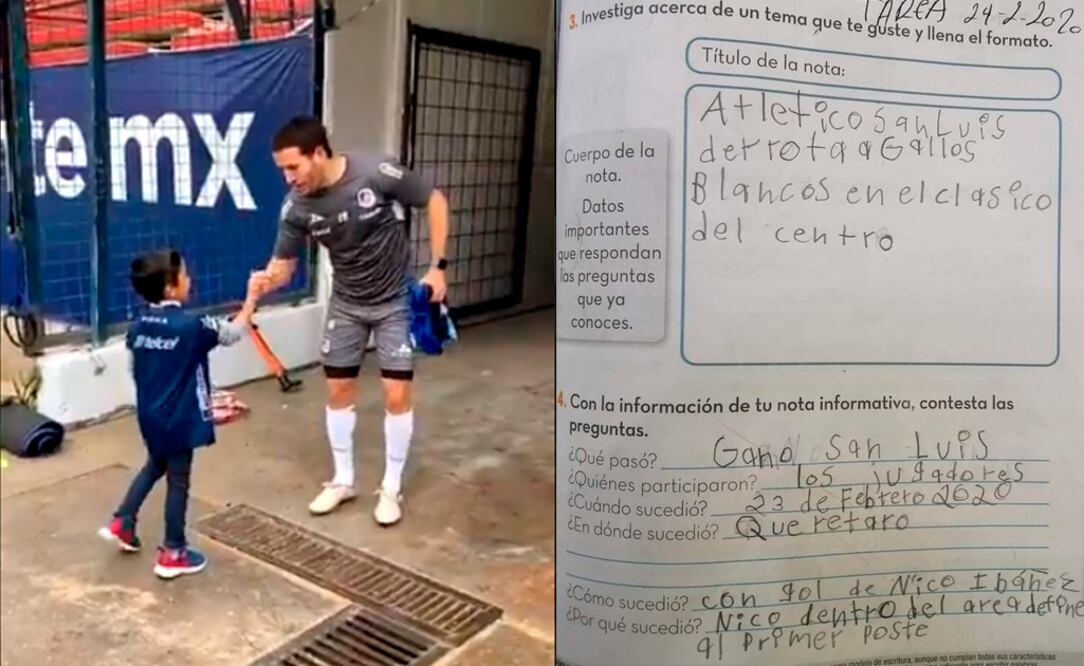 te mx
telcel
TAREA 24-2-2020
3. Investiga acerca de un tema que te guste y llena el formato.
Título de la nota:
Atlético San Luis
derrota a Gallos
Blancos en el clasico
del centro
Cuerpo de la
nota.
Datos
importantes
que respondan
las preguntas
que ya
conoces.
4. Con la información de tu nota informativa, contesta las
preguntas.
¿Qué pasó? Gano San Luis
¿Quiénes participaron? los jugadores
¿Cuándo sucedió? 23 de Febrero 2020
¿En dónde sucedió? Queretaro
¿Cómo sucedió? con gol de Nico Ibáñez
¿Por qué sucedió? Nico dentro del area define
al primer poste
modelo de escritura, aunque no cumplan todas sus características